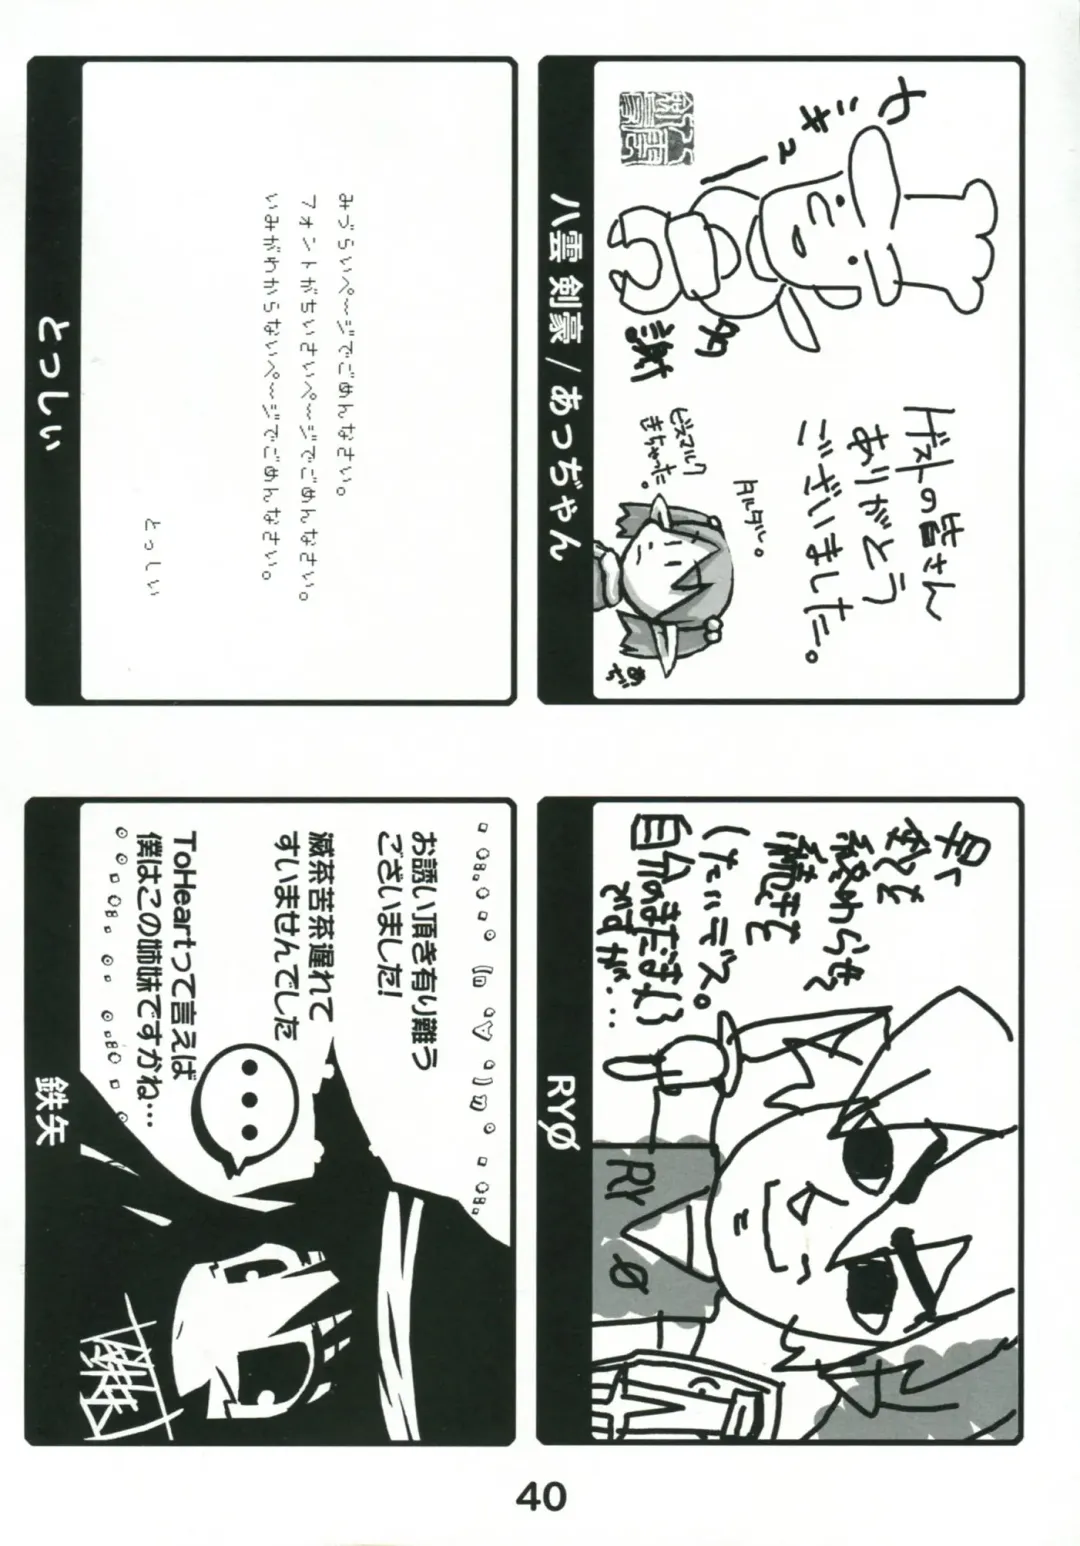 やきゅー
多
謝
ゲストの皆さん
ありがとう
ございました。
タルタル。
ビスマルク
きちゃった。
あぢ
八雲 剣豪 / あっぢゃん
早く
戦を
終わらせて
続きを
したいデス。
自分のまだまだ
RYO
RYØ
みづらいペ～ジでごめんなさい。
フォントがちいさいペ～ジでごめんなさい。
いみがわからないペ～ジでごめんなさい。
とっしい
とっしぃ
お誘い頂き有り難う
ございました!
滅茶苦茶遅れて
すいませんでした
ToHeartって言えば
僕はこの姉妹ですかね…
鉄矢
40